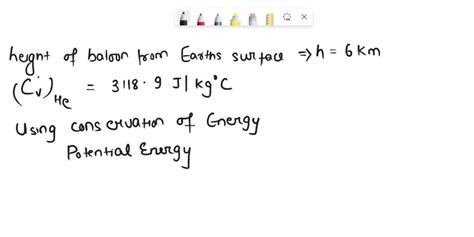 height of baloon from Earths surface ⇒ h = 6 km
(Cv)He = 3118.9 J/kg°C
Using conservation of Energy
Potential Energy